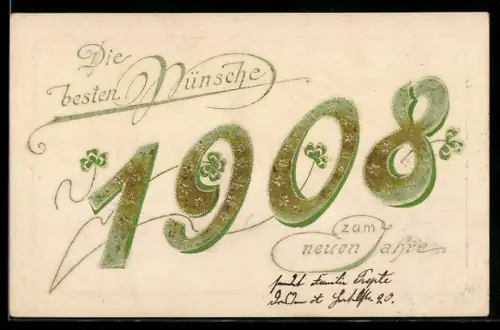 Die
besten Wünsche
1908
zum
neuen Jahre
Familie
20.